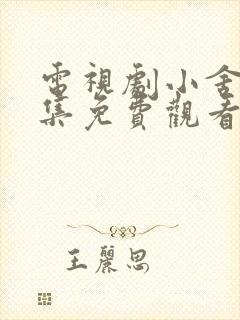 電視劇小舍
集免費觀看
王麗思